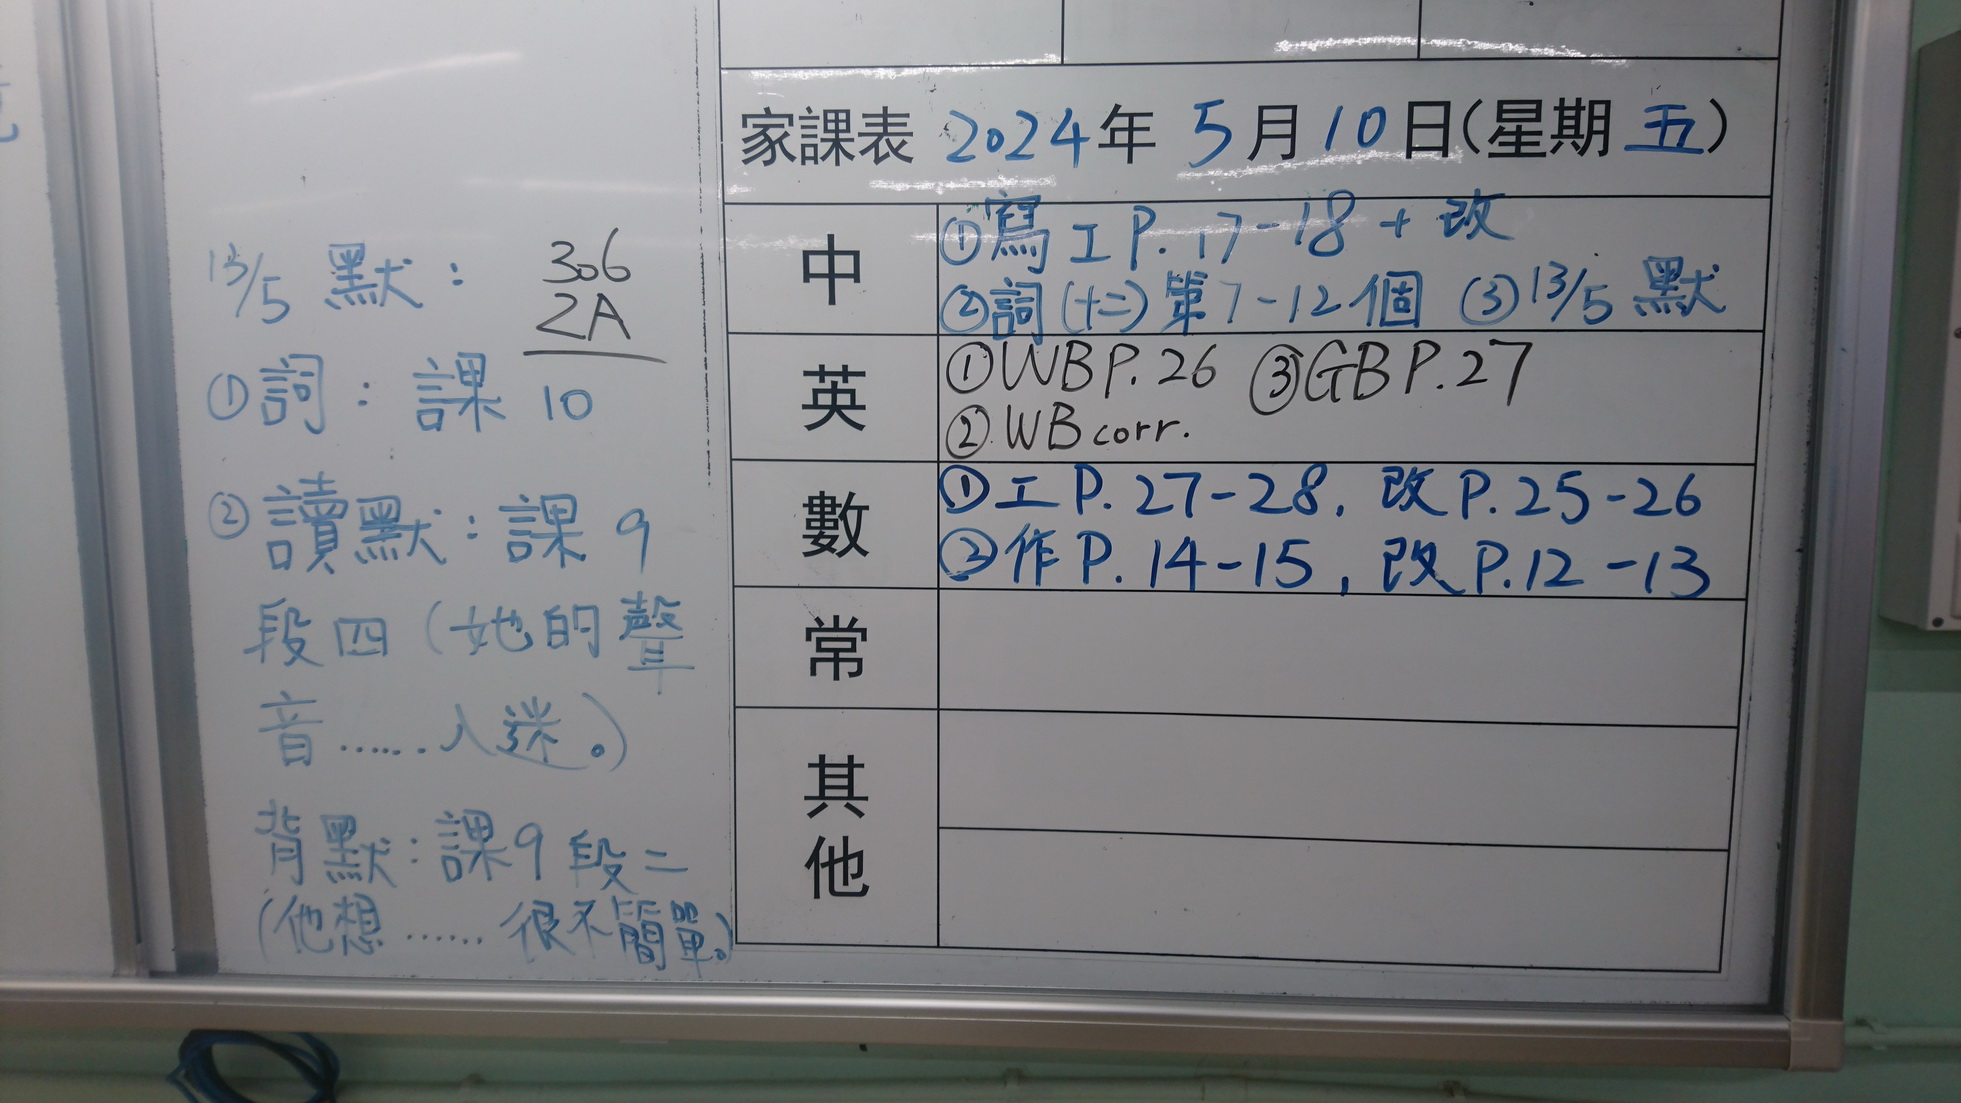 13/5 默:
306
2A
①詞: 課 10
②讀默:課 9
段四(她的聲
音……入迷。)
背默:課9段二
(他想……很不簡單。)
家課表 2024年 5月10日(星期五)
中
①寫工P.17-18+改
②詞(十二)第7-12個 ③13/5默
英
①WB P.26 ③GB P.27
②WB corr.
數
①工P.27-28, 改P.25-26
②作P.14-15, 改P.12-13
常
其
他